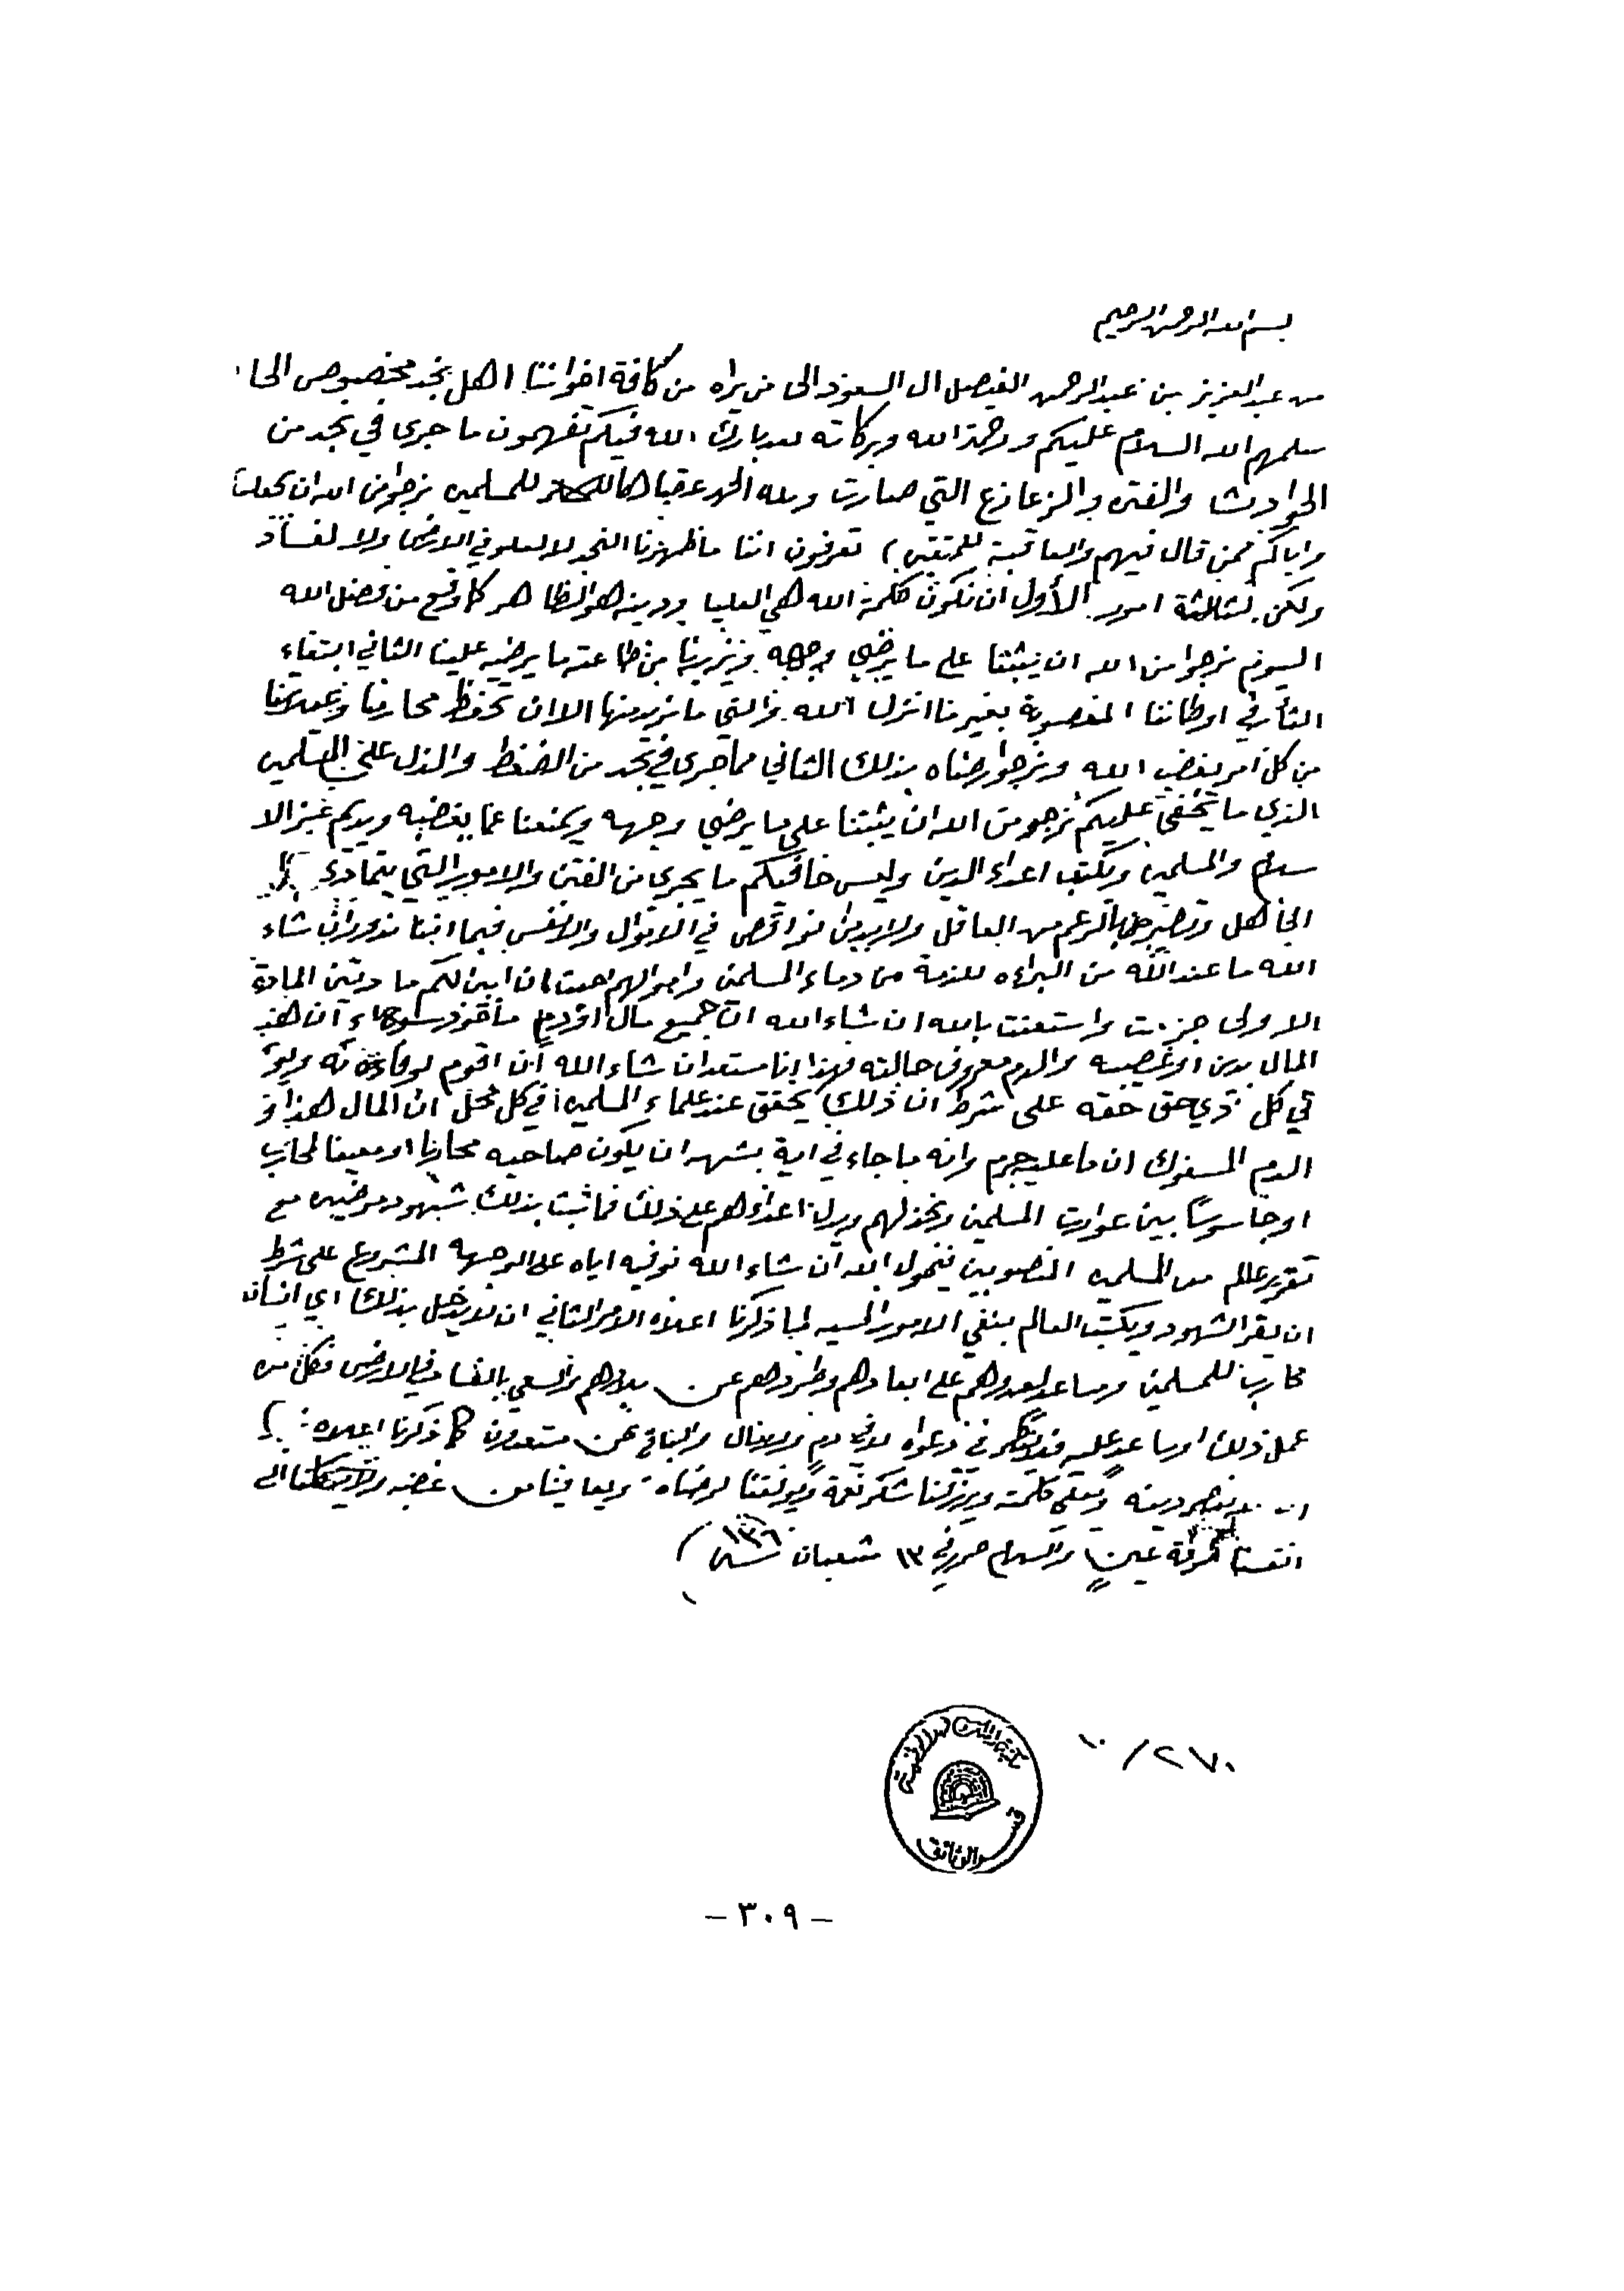 بسم الله الرحمن الرحيم
من عبد العزيز بن عبد الرحمن الفيصل ال السعود الى من يراه من كافة اخواننا اهل نجد
سلمهم الله السلام عليكم ورحمة الله وبركاته بعد بارك الله فيكم تفهمون ما جرى في نجد من
الحوادث والفتن والزعازع التي صارت ولله الحمد عقباها للمسلمين نرجوا من الله ان يجعلنا
واياكم ممن قال فيهم والعاقبة للمتقين) تعرفون اننا ما ظهرنا لا لعلو في الارض ولا لفساد
ولكن لثلاثة امور الأول ان تكون كلمة الله هي العليا ودينه هو الظاهر كما وقع من فضل الله
اليوم نرجوا من الله ان يثبتنا على ما يرضي وجهه ويزيدنا من طاعته ما يرضيه علينا الثاني ابتغاء
الثأر في اوطاننا المغصوبة بغير ما انزل الله والتي ما نريد منها الا ان نحفظ محارمنا
من كل امر يغضب الله ونرجوا رضاه بذلك الثاني مما جرى في نجد من الضغط والذل على المسلمين
الذي ما يخفى عليكم نرجو من الله ان يثبتنا على ما يرضي وجهه ويمنعنا عما يغضبه ويديم عز الا
سلام والمسلمين ويكبت اعداء الدين وليس خافيكم ما يجري من الفتن والامور التي
الجاهل من العاقل ولا بد من نواقص في الاموال والانفس فيما اننا ان شاء
الله ما عند الله من البراءه للذمة من دماء المسلمين واموالهم احببت ان ابين لكم مادتين المادة
الاولى جزمت واستعنت بالله ان شاء الله ان جميع مال او دم مأخوذ سواء ان هذا
المال بدين او غصيبه والدم معروف حالته فهذا انا مستعد ان شاء الله أن اقوم
في كل ذي حق حقه على شرط ان ذلك يحقق عند علماء المسلمين في كل محل ان المال هذا او
الدم المسفوك ان ما عليه جرم وانه ما جاء في اية يشهد ان يكون صاحبه محاربا او معينا لمحارب
او جاسوسًا بين عورات المسلمين وتخذلهم ويدل اعداؤهم على ذلك فما ثبت بذلك بشهود مرضيين مع
تقرير عالم من المسلمين المنصوبين بحول الله ان شاء الله نوفيه اياه على الوجه المشروع على شرط
ان يقر الشهود ويكتب العالم بنفي الامور لما ذكرنا اعلاه الامر الثاني ان لا يدخل بذلك اي انسان
محارب للمسلمين ومساعد لعدوهم على ابعادهم وطردهم عن بلادهم والسعي بالفساد في الارض فكل من
عمل ذلك او ساعد عليه في دعواه لا في دم ولا في مال والباقي نحن مستعدون كما ذكرنا اعلاه
ان ينصر دينه ويعلي كلمته ويرزقنا شكر نعمه ويوفقنا لرضاه ويعافينا من غضبه ولا يكلنا الى
انفسنا طرفة عين والسلام حرر في ١٣ شعبان سنة
٢٧٠/١٠
قسم الوثائق
- ٣٠٩ -